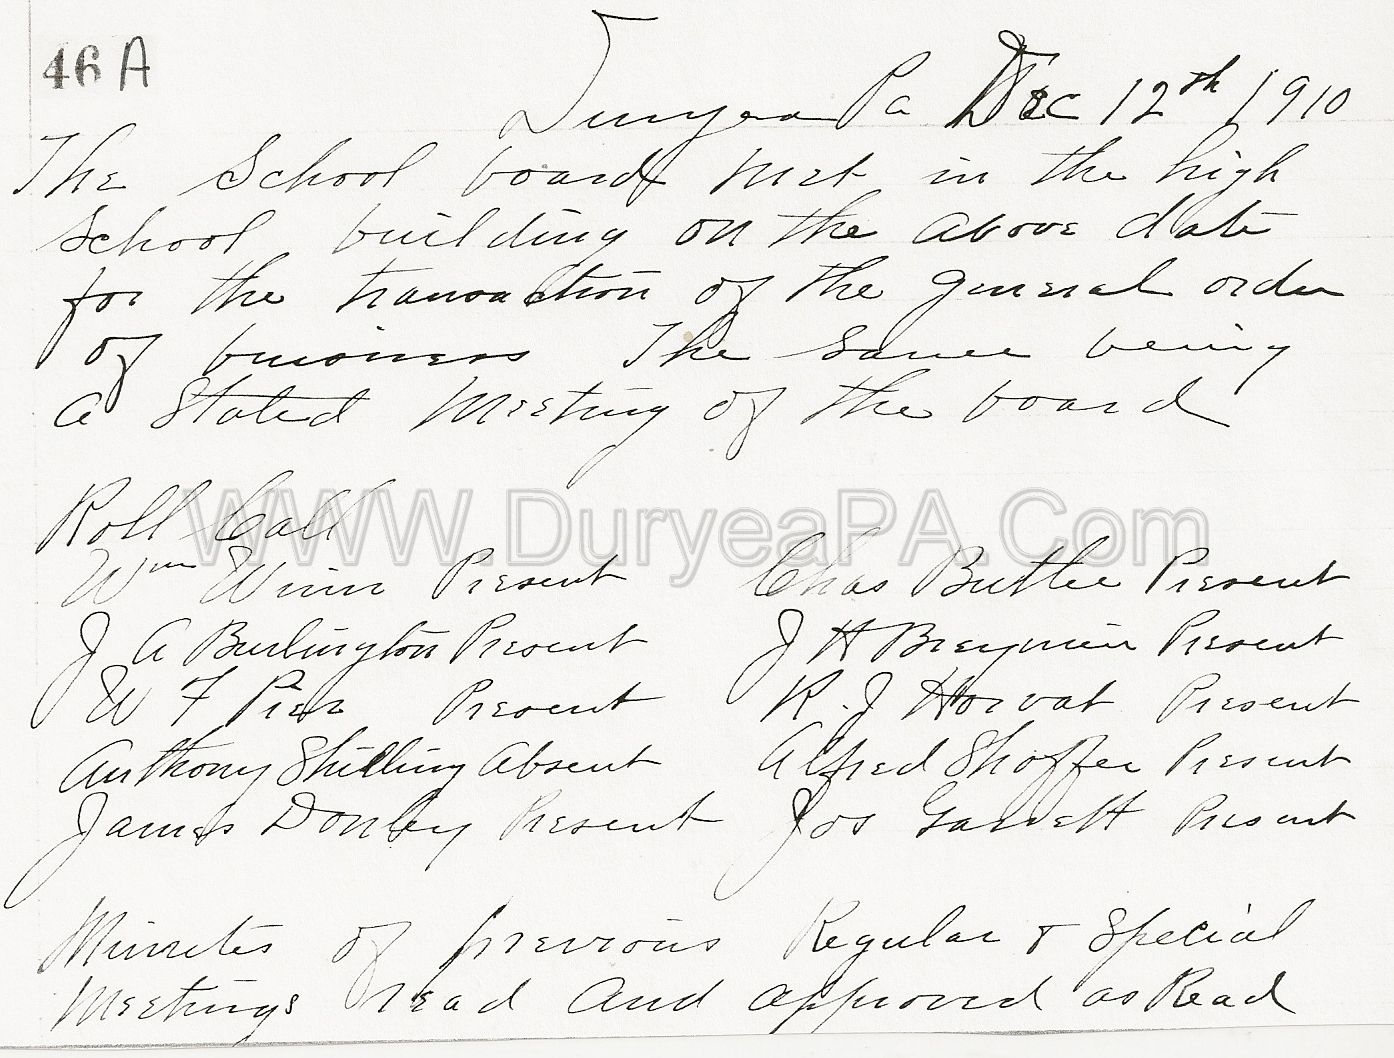 46 A
Duryea Pa Dec 12th 1910
The School board met in the high
School building on the above date
for the transaction of the general order
of business The same being
a Stated Meeting of the board
Roll Call
WWW.DuryeaPA.Com
Wm Winn Present Chas Butler Present
J A Burlington Present J H Breymeir Present
W F Pier Present R. J Horvat Present
Anthony Shilling Absent Alfred Shoffer Present
James Donley Present Jos Garrett Present
Minutes of previous Regular & Special
Meetings read and approved as Read